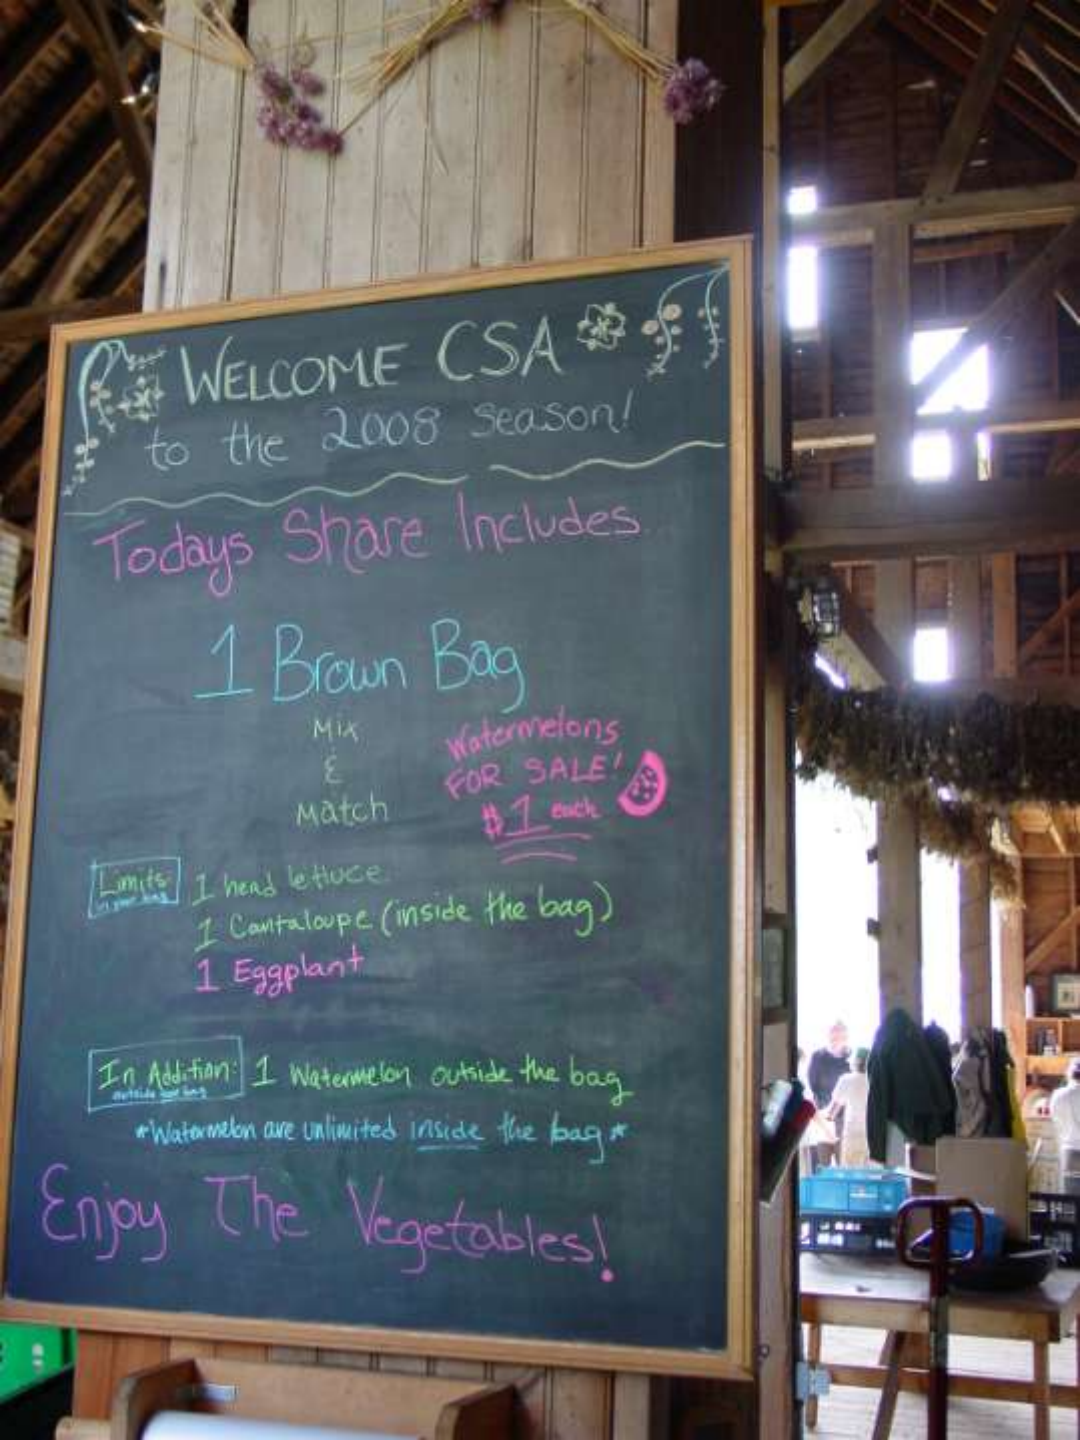 WELCOME CSA
to the 2008 season!
Todays Share Includes
1 Brown Bag
Mix
&
Match
Watermelons
FOR SALE!
$1 each
Limits:
in your bag
1 head lettuce
1 Cantaloupe (inside the bag)
1 Eggplant
In Addition:
outside your bag
1 Watermelon outside the bag
*Watermelon are unlimited inside the bag*
Enjoy The Vegetables!